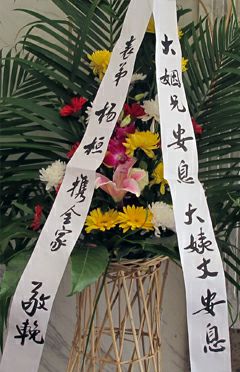 大姻兄安息大姨丈安息
表弟杨桓携全家敬輓